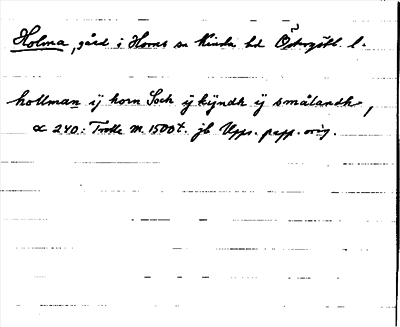 Holma, gård i Horns sn Kinda hd Östergötl. l.
hollman ÿ horn Soch ÿ kÿndh ÿ smålandh,
α 240: Trolle m. 1500t. jb Upps. papp. orig.